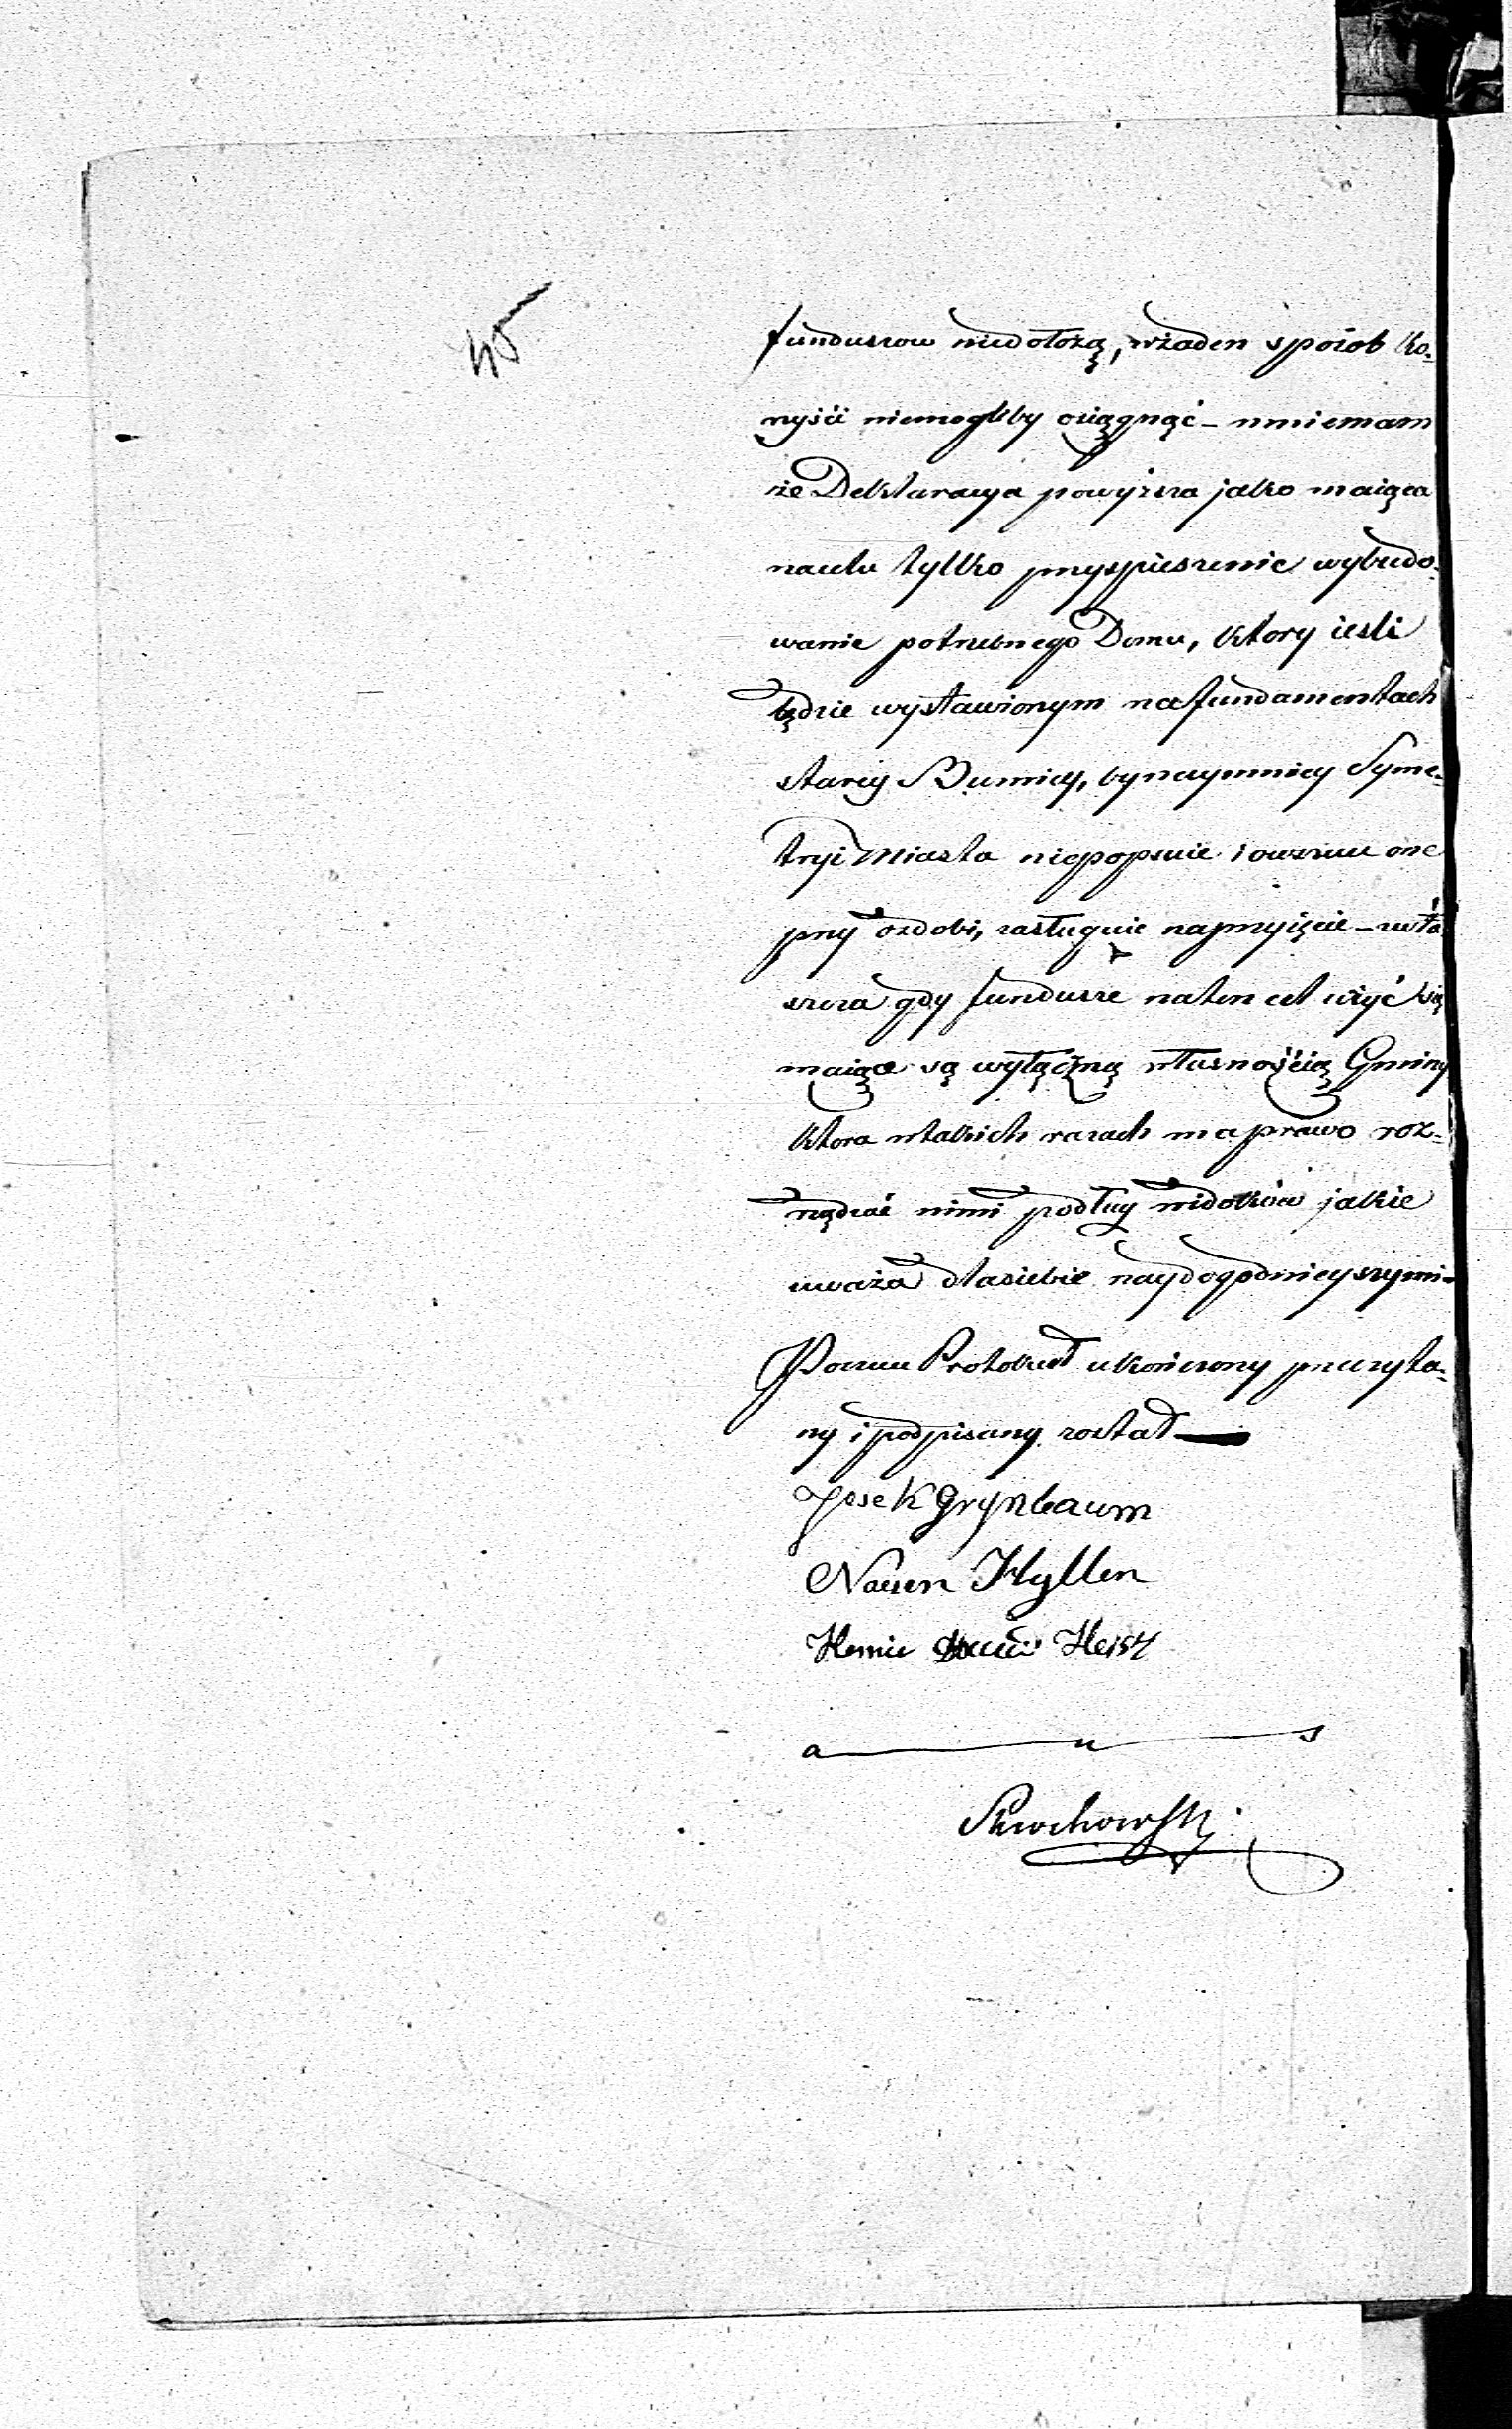 45
funduszow niedołożą, wżaden sposób ko-
rzyści niemogliby osiągnąć – mniemam
że Deklaracya powyższa jako maiąca
nacelu tylko przyspieszenie wybudo-
wanie potrzebnego Domu, ktory iesli
będzie wystawionym na fundamentach
starey Buznicy, bynaymniey Syme-
tryi Miasta niepopsuie i owszem one
przy ozdobi, zasługuie naprzyięcie – zwła
szcza gdy fundusze naten cel użyć się
maiące są wyłączną własnością Gminy
ktora wtakich razach ma prawo roz-
rządzać nimi podług widoków jakie
uważa dlasiebie naydogodnieyszymi –
Poczem Protokuł ukończony przeczyta-
ny i podpisany został —
Josek Grynbaum
Hersz
a u s